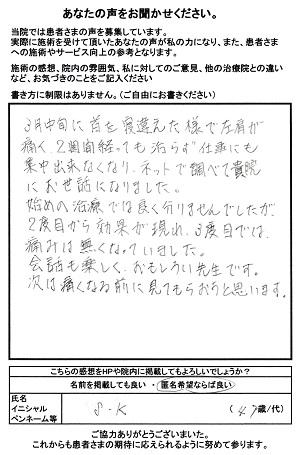 あなたの声をお聞かせください。
当院では患者さまの声を募集しています。
実際に施術を受けて頂いたあなたの声が私の力になり、また、患者さま
への施術やサービス向上の参考となります。
施術の感想、院内の雰囲気、私に対してのご意見、他の治療院との違い
など、お気づきのことをご記入ください
書き方に制限はありません。(ご自由にお書きください)
3月中旬に首を寝違えた様で左肩が
痛く、2週間経っても治らず仕事にも
集中出来なくなり、ネットで調べて貴院
にお世話になりました。
始めの治療では良く分りませんでしたが、
2度目から効果が現れ、3度目では、
痛みは無くなっていました。
会話も楽しく、おもしろい先生です。
次は痛くなる前に見てもらおうと思います。
こちらの感想をHPや院内に掲載してもよろしいでしょうか?
名前を掲載しても良い ・ 匿名希望ならば良い
氏名
イニシャル
ペンネーム等
S・K
(47歳/代)
ご協力ありがとうございました。
これからも患者さまの期待に応えられるように努めて参ります。